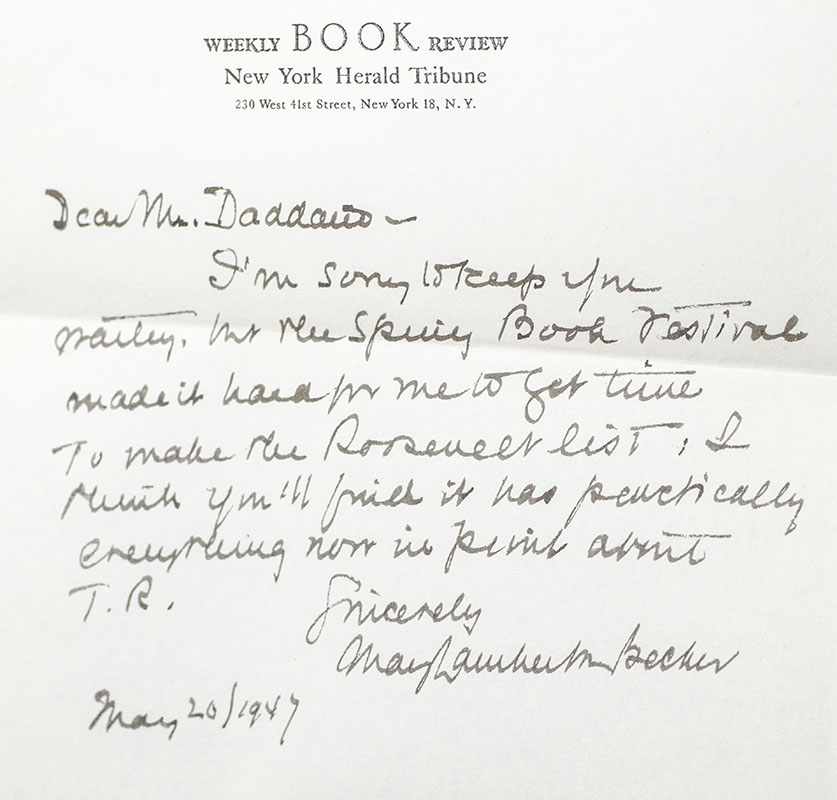 WEEKLY BOOK REVIEW
New York Herald Tribune
230 West 41st Street, New York 18, N. Y.
Dear Mr. Daddario –
I'm sorry to keep you
waiting, but the Spring Book Festival
made it hard for me to get time
to make the Roosevelt list; I
think you'll find it has practically
everything now in print about
T. R.
Sincerely
May Lamberton Becker
May 20/1947